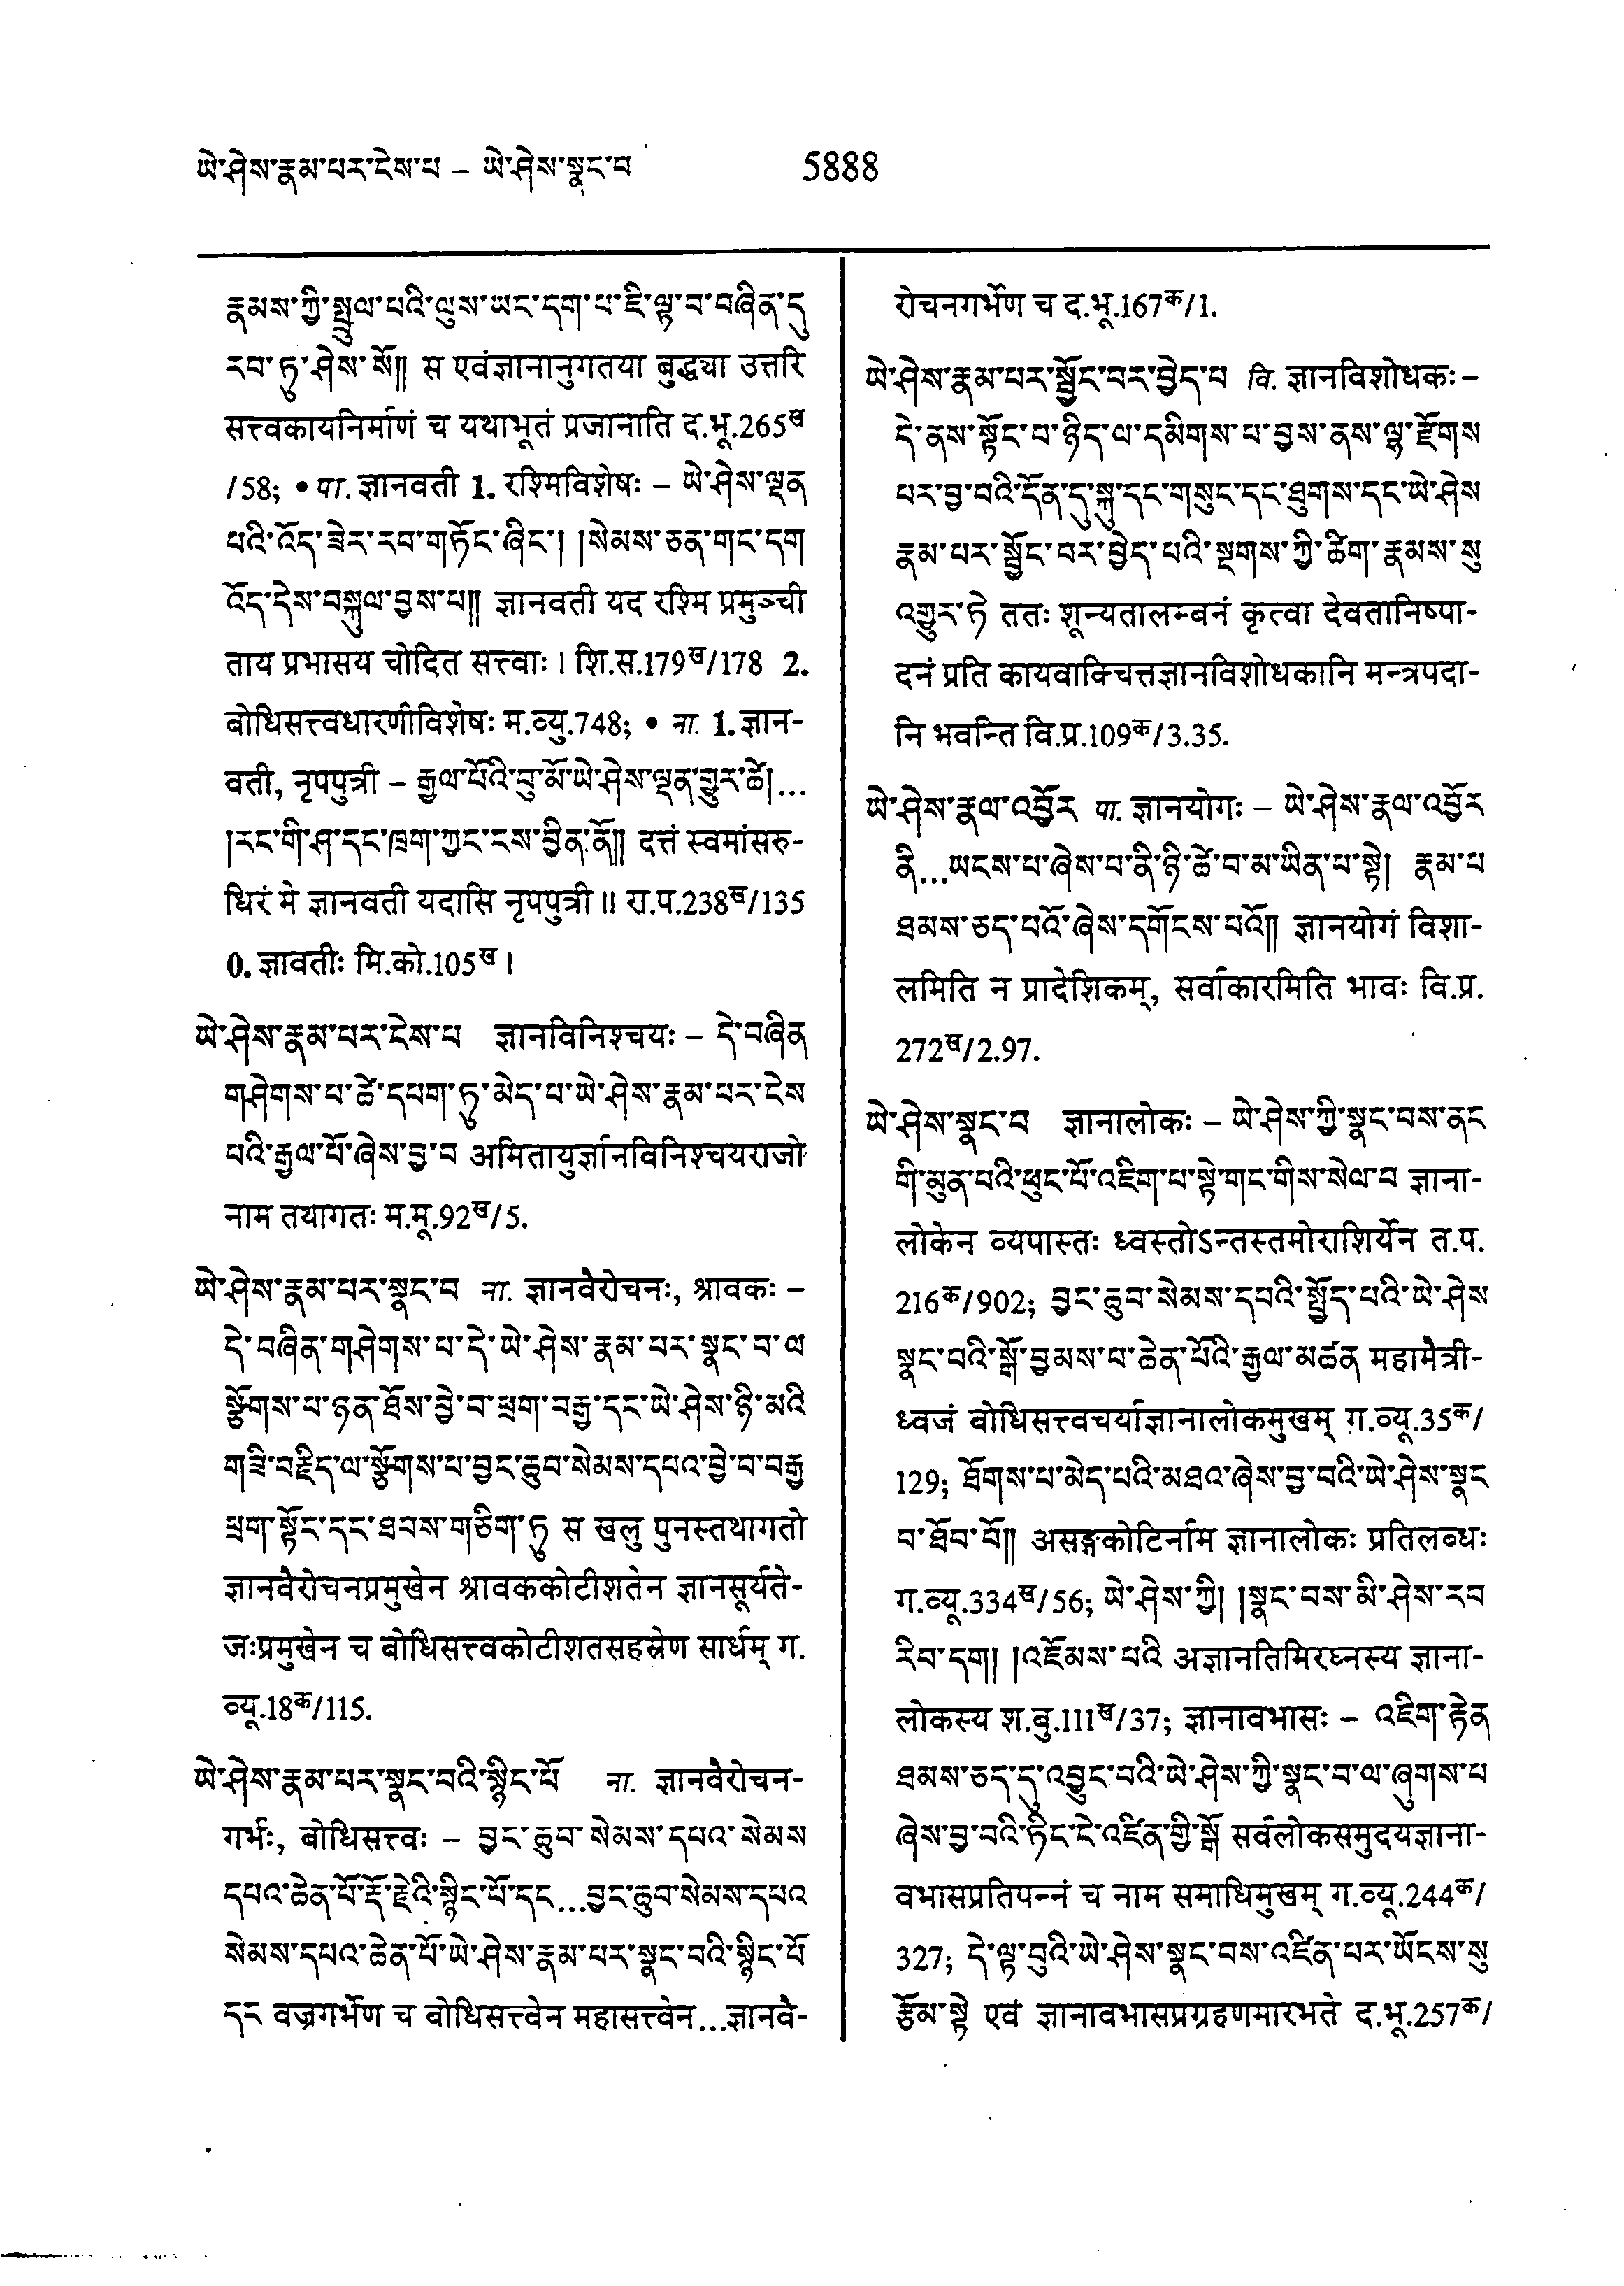 ཡེ་ཤེས་རྣམ་པར་ངེས་པ – ཡེ་ཤེས་སྣང་བ 5888
རྣམས་ཀྱི་སྤྲུལ་པའི་ལུས་ཡང་དག་པ་ཇི་ལྟ་བ་བཞིན་དུ
རབ་ཏུ་ཤེས་སོ།། स एवंज्ञानानुगतया बुद्ध्या उत्तरि
सत्त्वकायनिर्माणं च यथाभूतं प्रजानाति द.भू.265ख
/58; • पा. ज्ञानवती 1. रश्मिविशेषः – ཡེ་ཤེས་ལྡན
པའི་འོད་ཟེར་རབ་གཏོང་ཞིང་། །སེམས་ཅན་གང་དག
འོད་དེས་བསྐུལ་བྱས་པ།། ज्ञानवती यद रश्मि प्रमुञ्ची
ताय प्रभासय चोदित सत्त्वाः । शि.स.179ख/178 2.
बोधिसत्त्वधारणीविशेषः म.व्यु.748; • ना. 1. ज्ञान-
वती, नृपपुत्री – རྒྱལ་པོའི་བུ་མོ་ཡེ་ཤེས་ལྡན་གྱུར་ཚེ།...
།རང་གི་ཤ་དང་ཁྲག་ཀྱང་ངས་བྱིན་ནོ།། दत्तं स्वमांसरु-
धिरं मे ज्ञानवती यदासि नृपपुत्री ॥ रा.प.238ख/135
0. ज्ञावतीः मि.को.105ख ।
ཡེ་ཤེས་རྣམ་པར་ངེས་པ ज्ञानविनिश्चयः – དེ་བཞིན
གཤེགས་པ་ཚེ་དཔག་ཏུ་མེད་པ་ཡེ་ཤེས་རྣམ་པར་ངེས
པའི་རྒྱལ་པོ་ཞེས་བྱ་བ अमितायुर्ज्ञानविनिश्चयराजो
नाम तथागतः म.मू.92ख/5.
ཡེ་ཤེས་རྣམ་པར་སྣང་བ ना. ज्ञानवैरोचनः, श्रावकः –
དེ་བཞིན་གཤེགས་པ་དེ་ཡེ་ཤེས་རྣམ་པར་སྣང་བ་ལ
སྩོགས་པ་ཉན་ཐོས་བྱེ་བ་ཕྲག་བརྒྱ་དང་ཡེ་ཤེས་ཉི་མའི
གཟི་བརྗིད་ལ་སྩོགས་པ་བྱང་ཆུབ་སེམས་དཔའ་བྱེ་བ་བརྒྱ
ཕྲག་སྟོང་དང་ཐབས་གཅིག་ཏུ स खलु पुनस्तथागतो
ज्ञानवैरोचनप्रमुखेन श्रावककोटीशतेन ज्ञानसूर्यते-
जःप्रमुखेन च बोधिसत्त्वकोटीशतसहस्रेण सार्धम् ग.
व्यू.18क/115.
ཡེ་ཤེས་རྣམ་པར་སྣང་བའི་སྙིང་པོ ना. ज्ञानवैरोचन-
गर्भः, बोधिसत्त्वः – བྱང་ཆུབ་སེམས་དཔའ་སེམས
དཔའ་ཆེན་པོ་རྡོ་རྗེའི་སྙིང་པོ་དང...བྱང་ཆུབ་སེམས་དཔའ
སེམས་དཔའ་ཆེན་པོ་ཡེ་ཤེས་རྣམ་པར་སྣང་བའི་སྙིང་པོ
དང वज्रगर्भेण च बोधिसत्त्वेन महासत्त्वेन...ज्ञानवै-
रोचनगर्भेण च द.भू.167क/1.
ཡེ་ཤེས་རྣམ་པར་སྦྱོང་བར་བྱེད་པ वि. ज्ञानविशोधकः –
དེ་ནས་སྟོང་བ་ཉིད་ལ་དམིགས་པ་བྱས་ནས་ལྷ་རྫོགས
པར་བྱ་བའི་དོན་དུ་སྐུ་དང་གསུང་དང་ཐུགས་དང་ཡེ་ཤེས
རྣམ་པར་སྦྱོང་བར་བྱེད་པའི་སྔགས་ཀྱི་ཚིག་རྣམས་སུ
འགྱུར་ཏེ ततः शून्यतालम्बनं कृत्वा देवतानिष्पा-
दनं प्रति कायवाक्चित्तज्ञानविशोधकानि मन्त्रपदा-
नि भवन्ति वि.प्र.109क/3.35.
ཡེ་ཤེས་རྣལ་འབྱོར पा. ज्ञानयोगः – ཡེ་ཤེས་རྣལ་འབྱོར
ནི...ཡངས་པ་ཞེས་པ་ནི་ཉི་ཚེ་བ་མ་ཡིན་པ་སྟེ། རྣམ་པ
ཐམས་ཅད་པའོ་ཞེས་དགོངས་པའོ།། ज्ञानयोगं विशा-
लमिति न प्रादेशिकम्, सर्वाकारमिति भावः वि.प्र.
272ख/2.97.
ཡེ་ཤེས་སྣང་བ ज्ञानालोकः – ཡེ་ཤེས་ཀྱི་སྣང་བས་ནང
གི་མུན་པའི་ཕུང་པོ་འཇིག་པ་སྟེ་གང་གིས་སེལ་བ ज्ञाना-
लोकेन व्यपास्तः ध्वस्तोऽन्तस्तमोराशिर्येन त.प.
216क/902; བྱང་ཆུབ་སེམས་དཔའི་སྤྱོད་པའི་ཡེ་ཤེས
སྣང་བའི་སྒོ་བྱམས་པ་ཆེན་པོའི་རྒྱལ་མཚན महामैत्री-
ध्वजं बोधिसत्त्वचर्याज्ञानालोकमुखम् ग.व्यू.35क/
129; ཐོགས་པ་མེད་པའི་མཐའ་ཞེས་བྱ་བའི་ཡེ་ཤེས་སྣང
བ་ཐོབ་བོ།། असङ्गकोटिर्नाम ज्ञानालोकः प्रतिलब्धः
ग.व्यू.334ख/56; ཡེ་ཤེས་ཀྱི། །སྣང་བས་མི་ཤེས་རབ
རིབ་དག། །འཇོམས་པའི अज्ञानतिमिरघ्नस्य ज्ञाना-
लोकस्य श.बु.111ख/37; ज्ञानावभासः – འཇིག་རྟེན
ཐམས་ཅད་དུ་འབྱུང་བའི་ཡེ་ཤེས་ཀྱི་སྣང་བ་ལ་ཞུགས་པ
ཞེས་བྱ་བའི་ཏིང་ངེ་འཛིན་གྱི་སྒོ सर्वलोकसमुदयज्ञाना-
वभासप्रतिपन्नं च नाम समाधिमुखम् ग.व्यू.244क/
327; དེ་ལྟ་བུའི་ཡེ་ཤེས་སྣང་བས་འཛིན་པར་ཡོངས་སུ
རྩོམ་སྟེ एवं ज्ञानावभासप्रग्रहणमारभते द.भू.257क/